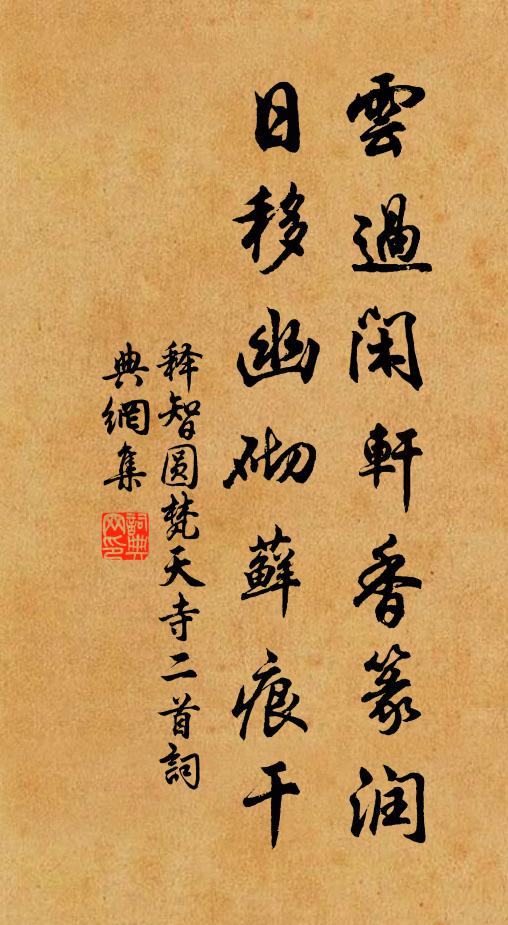 雲過闲軒香篆润
日移幽砌蘚痕干
释智圆梵天寺二首詞
典網集
詞典网印